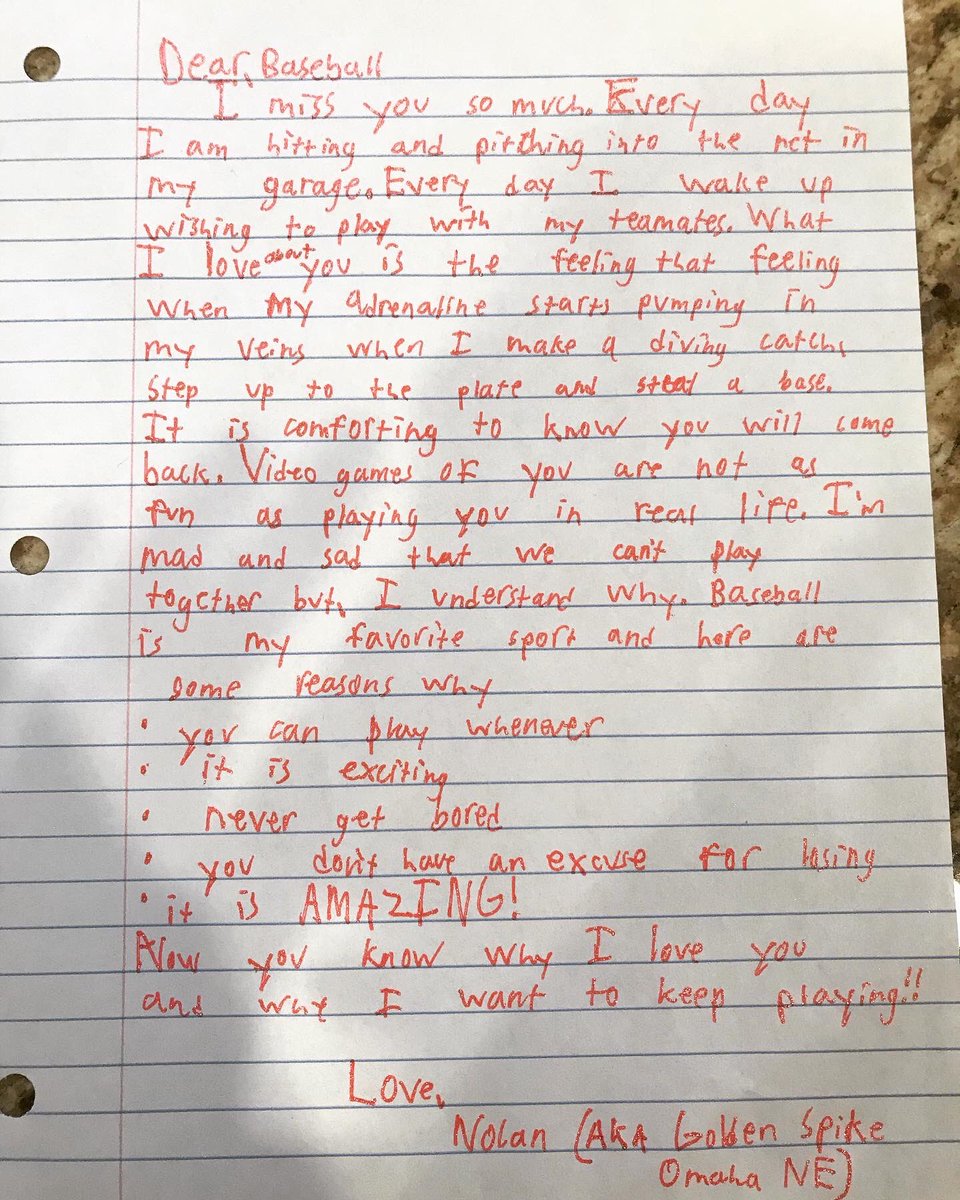 Dear, Baseball
I miss you so much. Every day
I am hitting and pitching into the net in
my garage. Every day I wake up
wishing to play with my teamates. What
I love about you is the feeling that feeling
when my adrenaline starts pumping in
my veins when I make a diving catch,
step up to the plate and steal a base.
It is comforting to know you will come
back. Video games of you are not as
fun as playing you in real life. I'm
mad and sad that we can't play
together but, I understand why. Baseball
is my favorite sport and here are
some reasons why
• you can play whenever
• it is exciting
• never get bored
• you don't have an excuse for losing
• it is AMAZING!
Now you know why I love you
and why I want to keep playing!!
Love,
Nolan (AKA Golden Spike
Omaha NE)